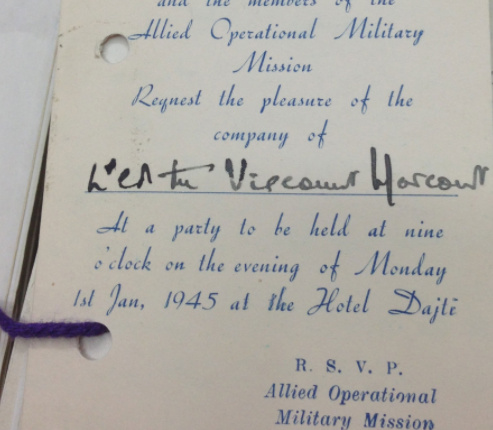 and the members of the
Allied Operational Military
Mission
Reqnest the pleasure of the
company of
Viscount Harcourt
At a party to be held at nine
o'clock on the evening of Monday
1st Jan, 1945 at the Hotel Dajti
R. S. V. P.
Allied Operational
Military Mission